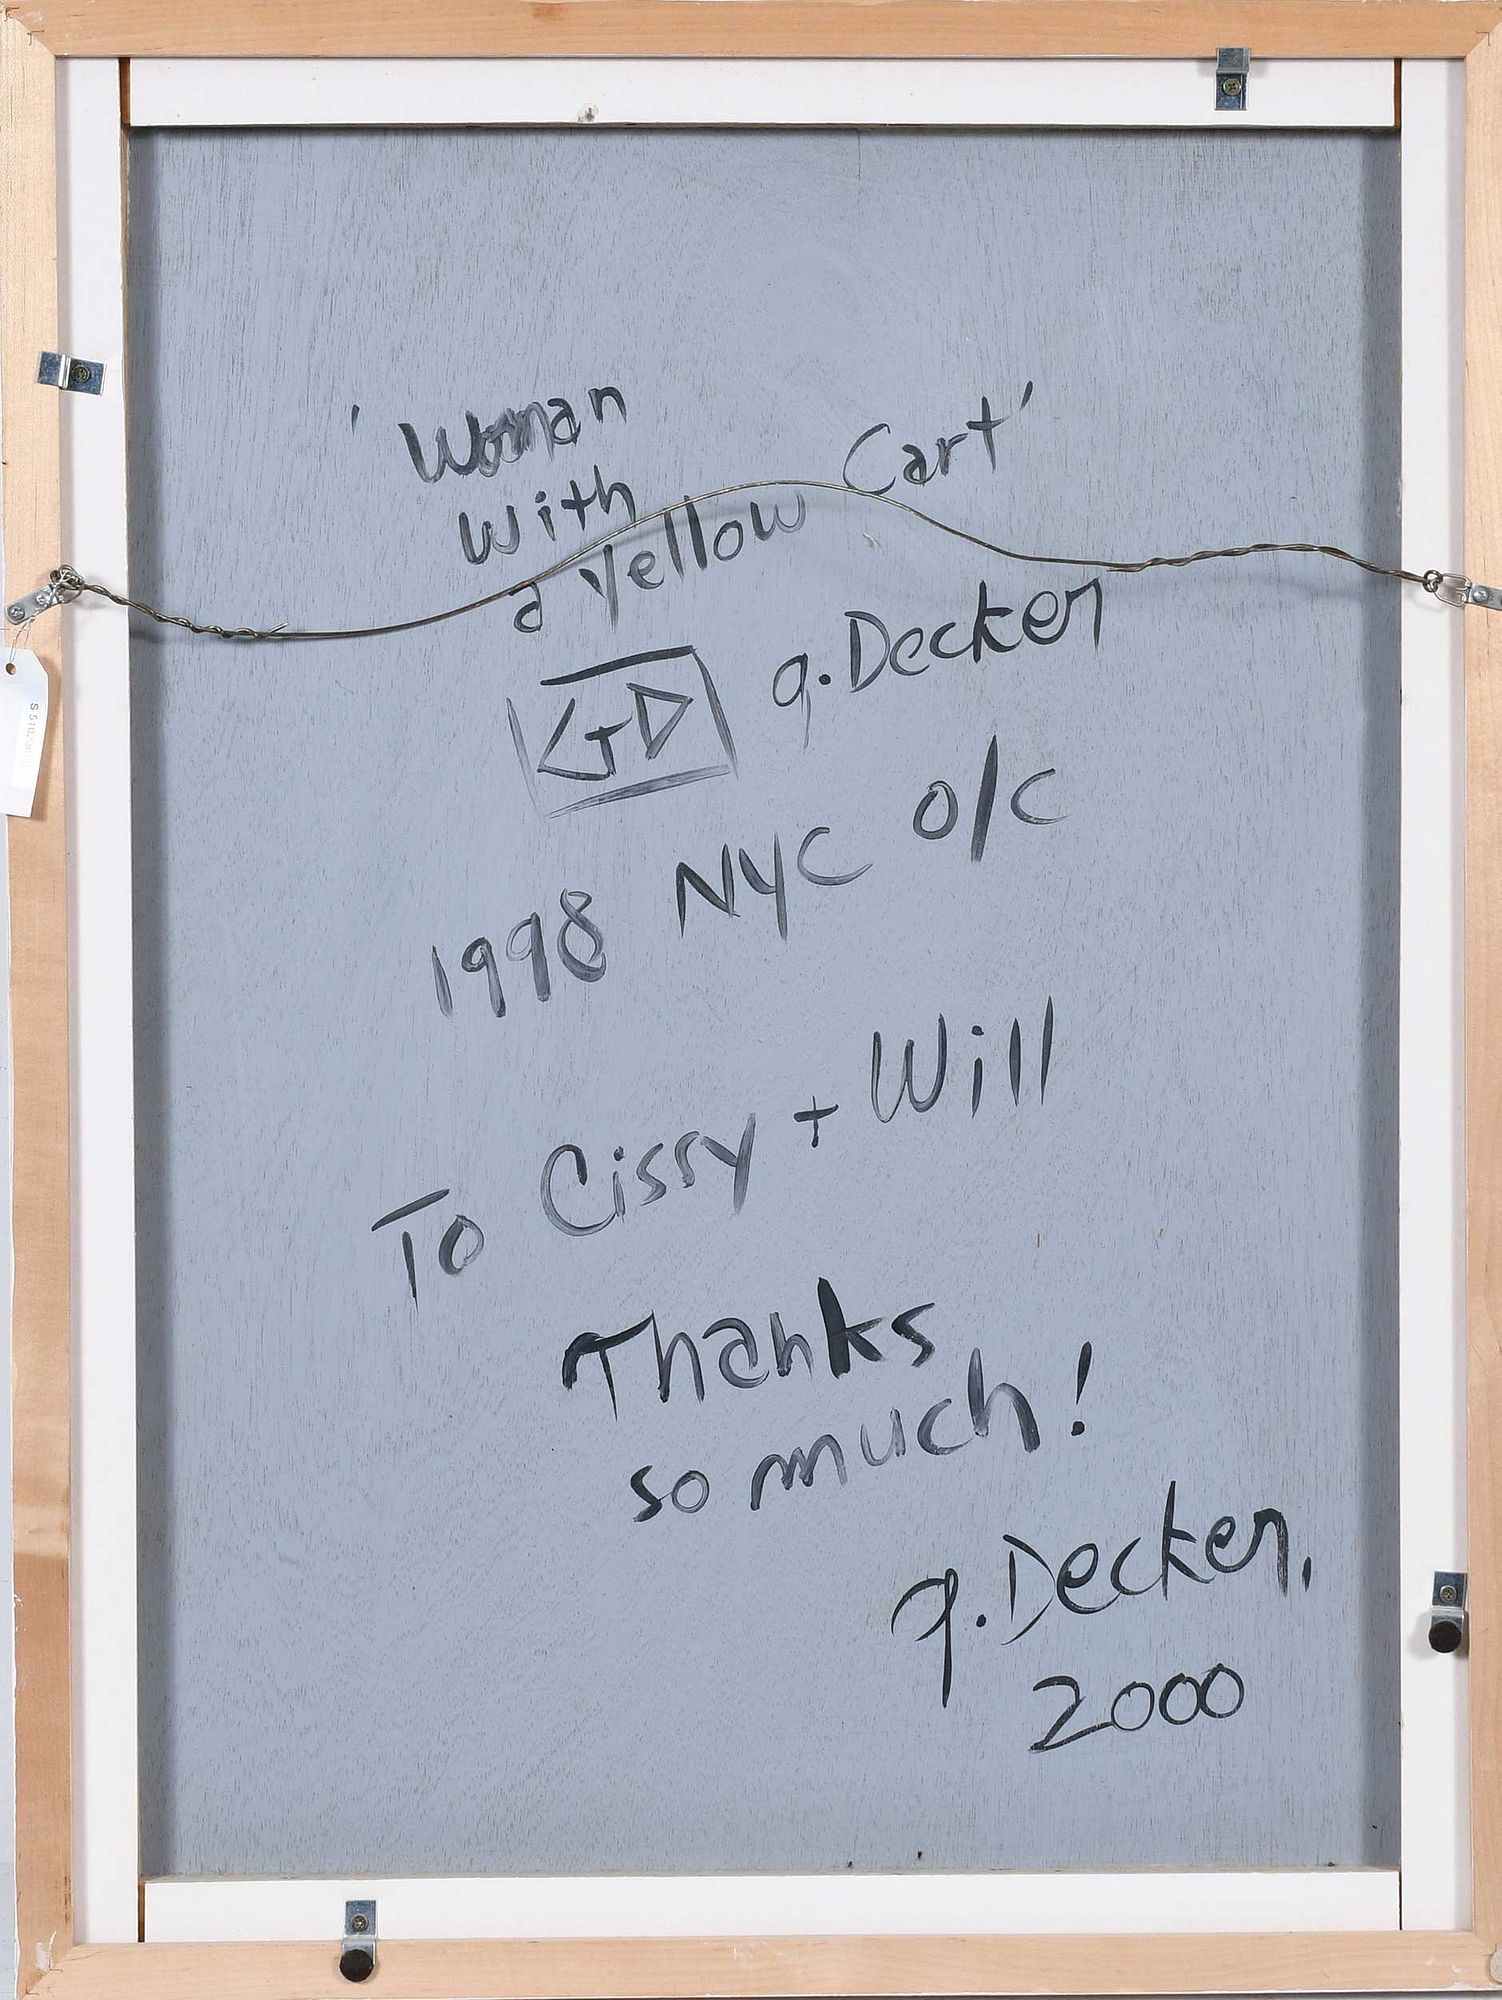 'Woman
With
a Yellow Cart'
GD g. Decker
1998 NYC O/C
To Cissy + Will
Thanks
so much!
g. Decker.
2000